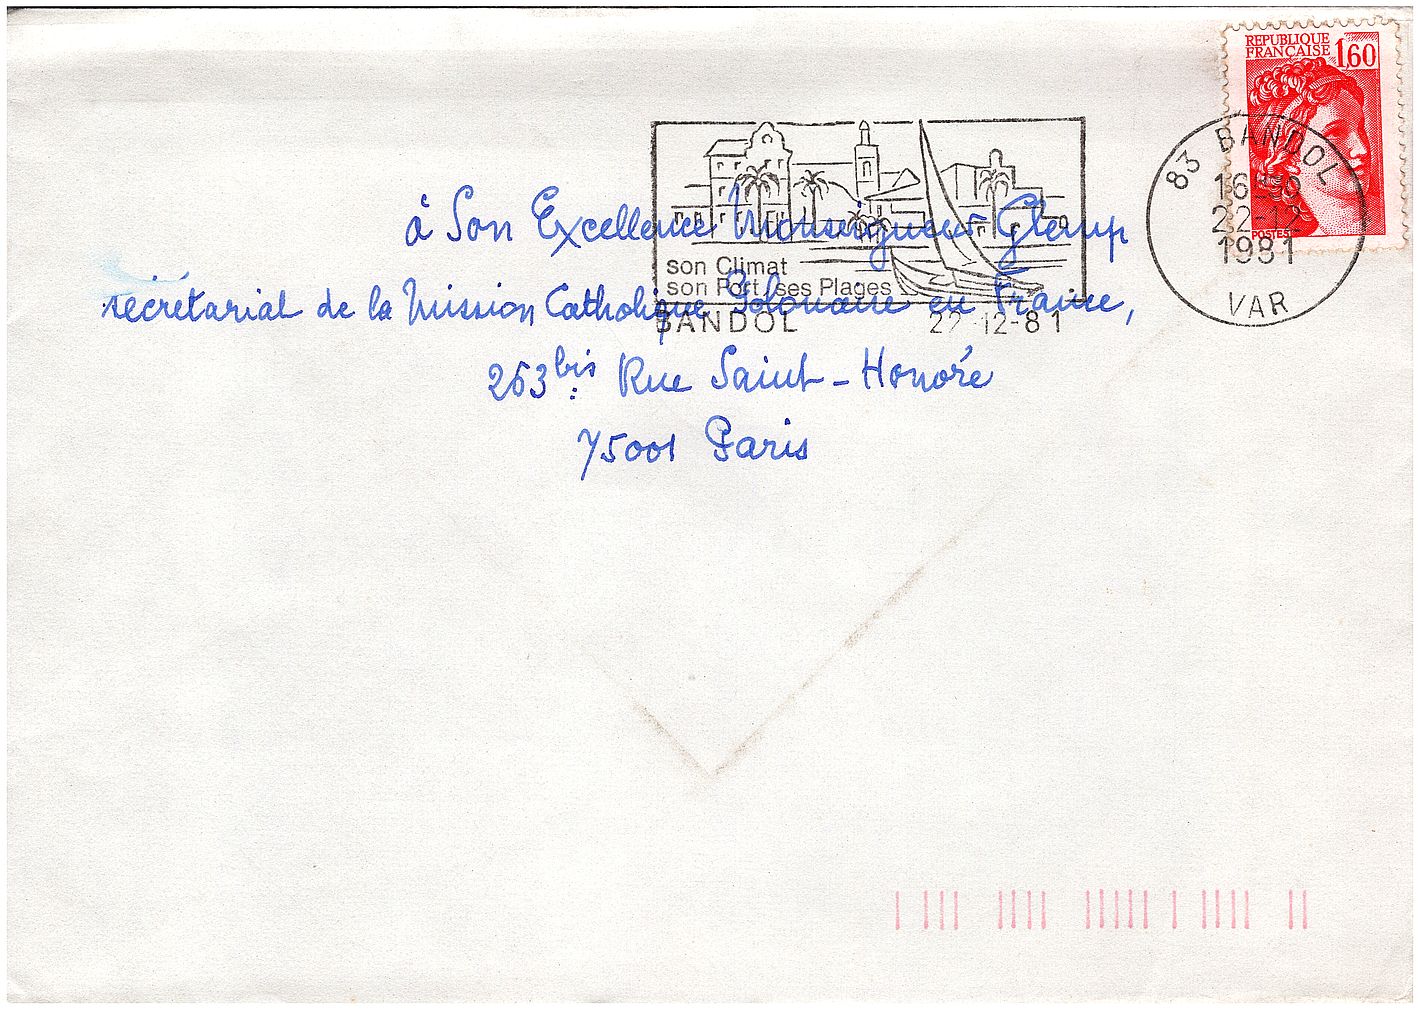 REPUBLIQUE
FRANÇAISE 1,60
POSTES
83 BANDOL
22-12
1981
VAR
son Climat
son Port, ses Plages
BANDOL 22-12-81
à Son Excellence Monseigneur Glemp
secrétariat de la Mission Catholique Polonaise en France,
263 bis Rue Saint-Honoré
75001 Paris